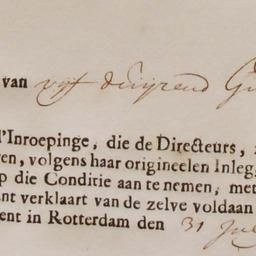 van vyf duijzend Gu
l'Inroepinge, die de Directeurs,
en, volgens haar origineelen Inleg,
p die Conditie aan te nemen, met
nt verklaart van de zelve voldaan
ent in Rotterdam den 31 Jul